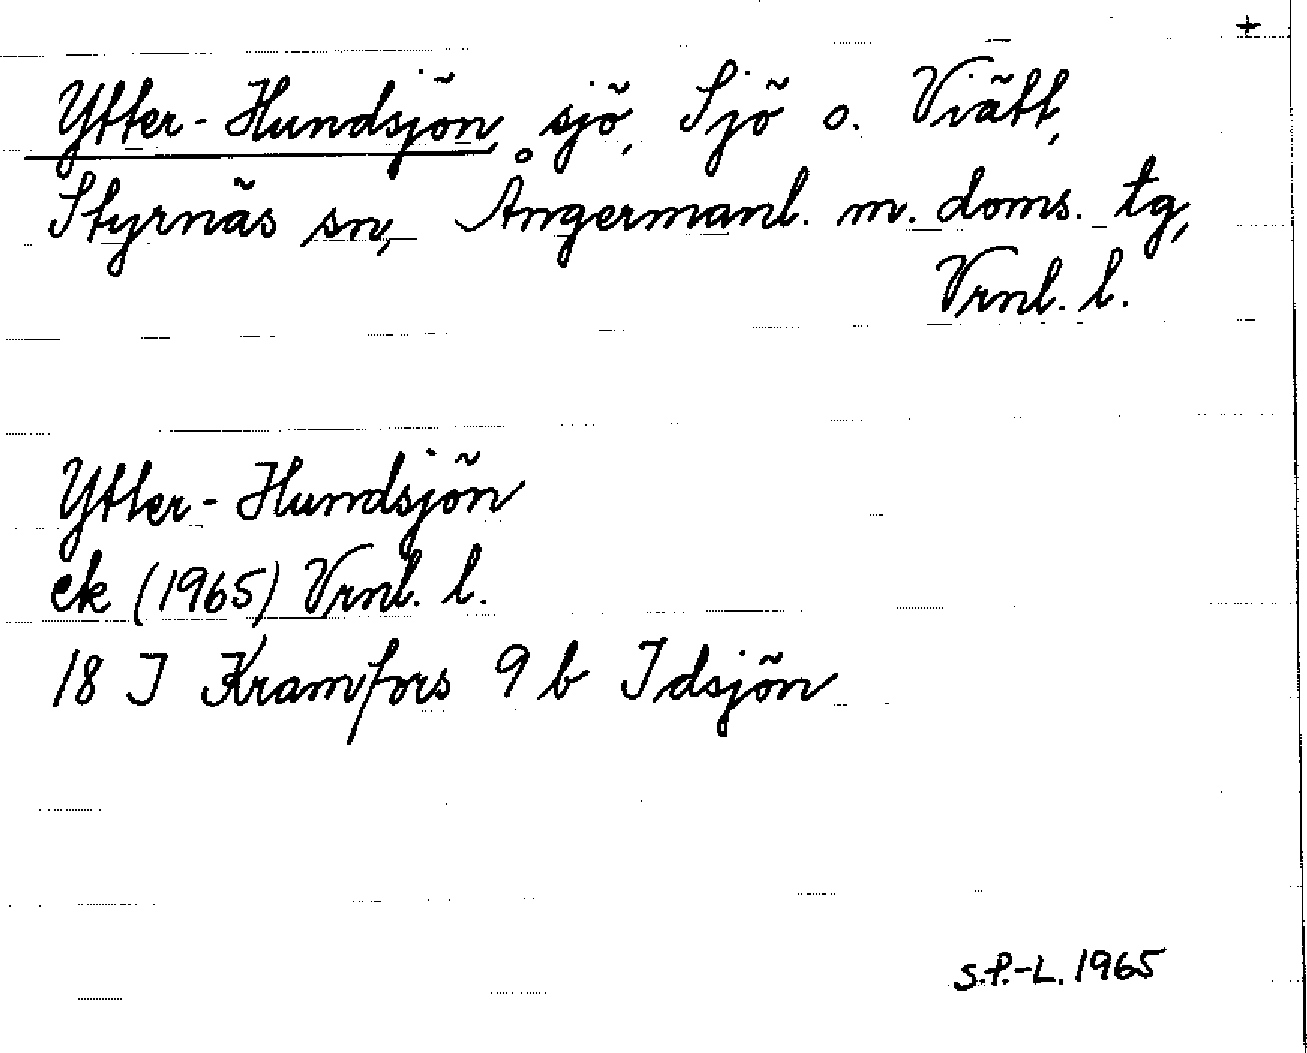 +
Ytter-Hundsjön, sjö, Sjö o. Viätt,
Styrnäs sn, Ångermanl. m. doms. tg,
Vrnl. l.
Ytter-Hundsjön
ek (1965) Vrnl. l.
18 I Kramfors 9 b Idsjön
S.P.-L. 1965